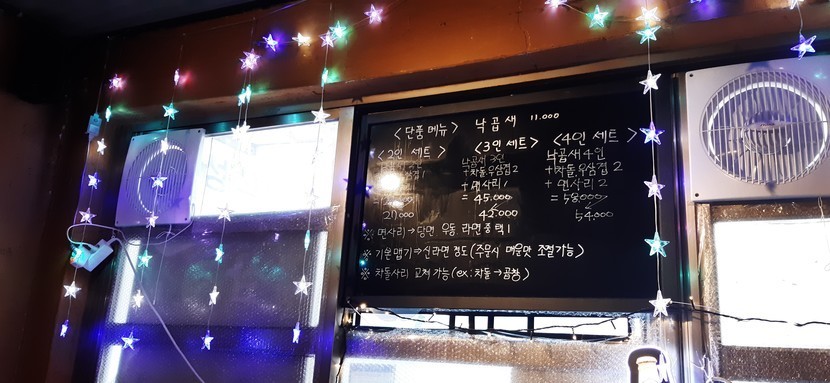 <단품메뉴> 낙곱새 11.000
<2인 세트>
21.000
<3인 세트>
낙곱새 3인
+차돌.우삼겹2
+ 면사리 1
= 45.000
42.000
<4인 세트>
낙곱새 4인
+차돌.우삼겹 2
+ 면사리 2
= 58000
54.000
※ 면사리→당면 우동 라면 중 택1
※ 기본맵기⇒신라면 정도(주문시 매운맛 조절가능)
※ 차돌사리 교체 가능(ex:차돌→곱창)